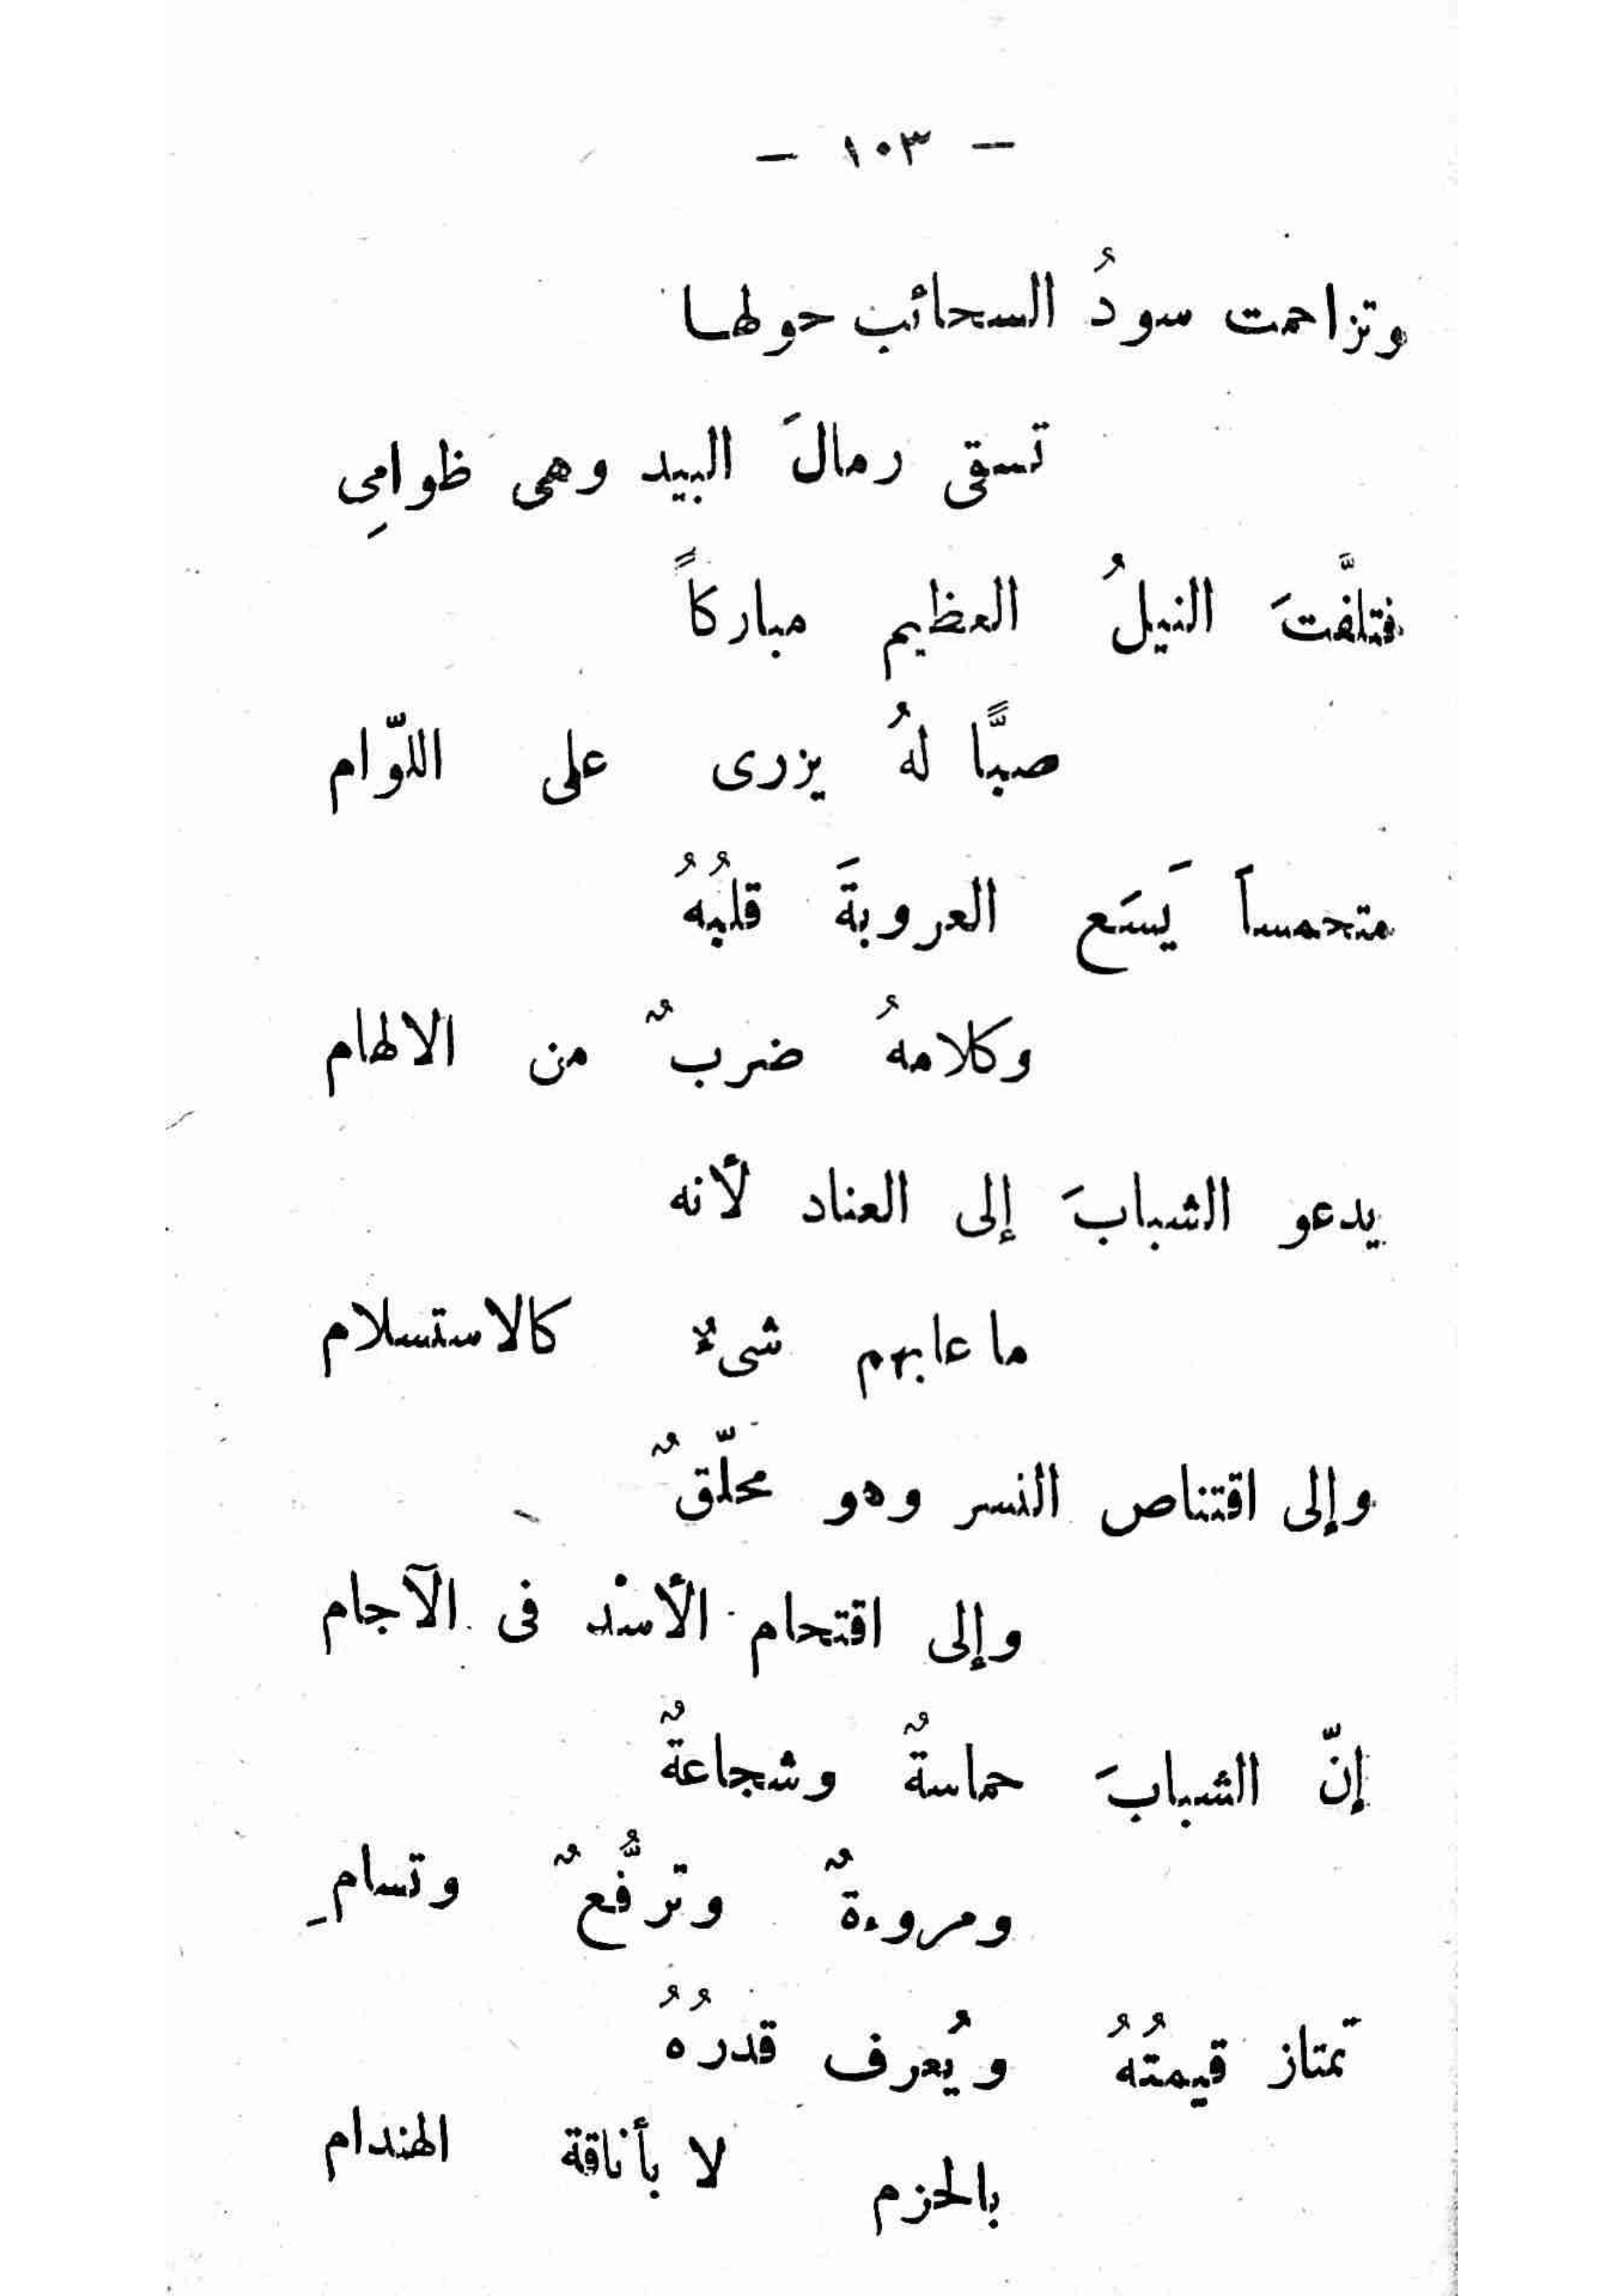 — ١٠٣ —
وتزاحمت سودُ السحائب حولها
تسقى رمالَ البيد وهى ظوامىِ
فتلفَّتَ النيلُ العظيم مباركاً
صبًّا لهُ يزرى على اللوّام
متحمساً يَسَع العروبةَ قلبُهُ
وكلامهُ ضربٌ من الالهام
يدعو الشبابَ إلى العناد لأنه
ما عابهم شىءٌ كالاستسلام
وإلى اقتناص النسر وهو محلّقٌ
وإلى اقتحام الأسْد فى الآجام
إنّ الشبابَ حماسةٌ وشجاعةٌ
ومروءةٌ وترفُّعٌ وتسامِ
تمتاز قيمتُهُ ويُعرف قدرُهُ
بالحزم لا بأناقة الهندام